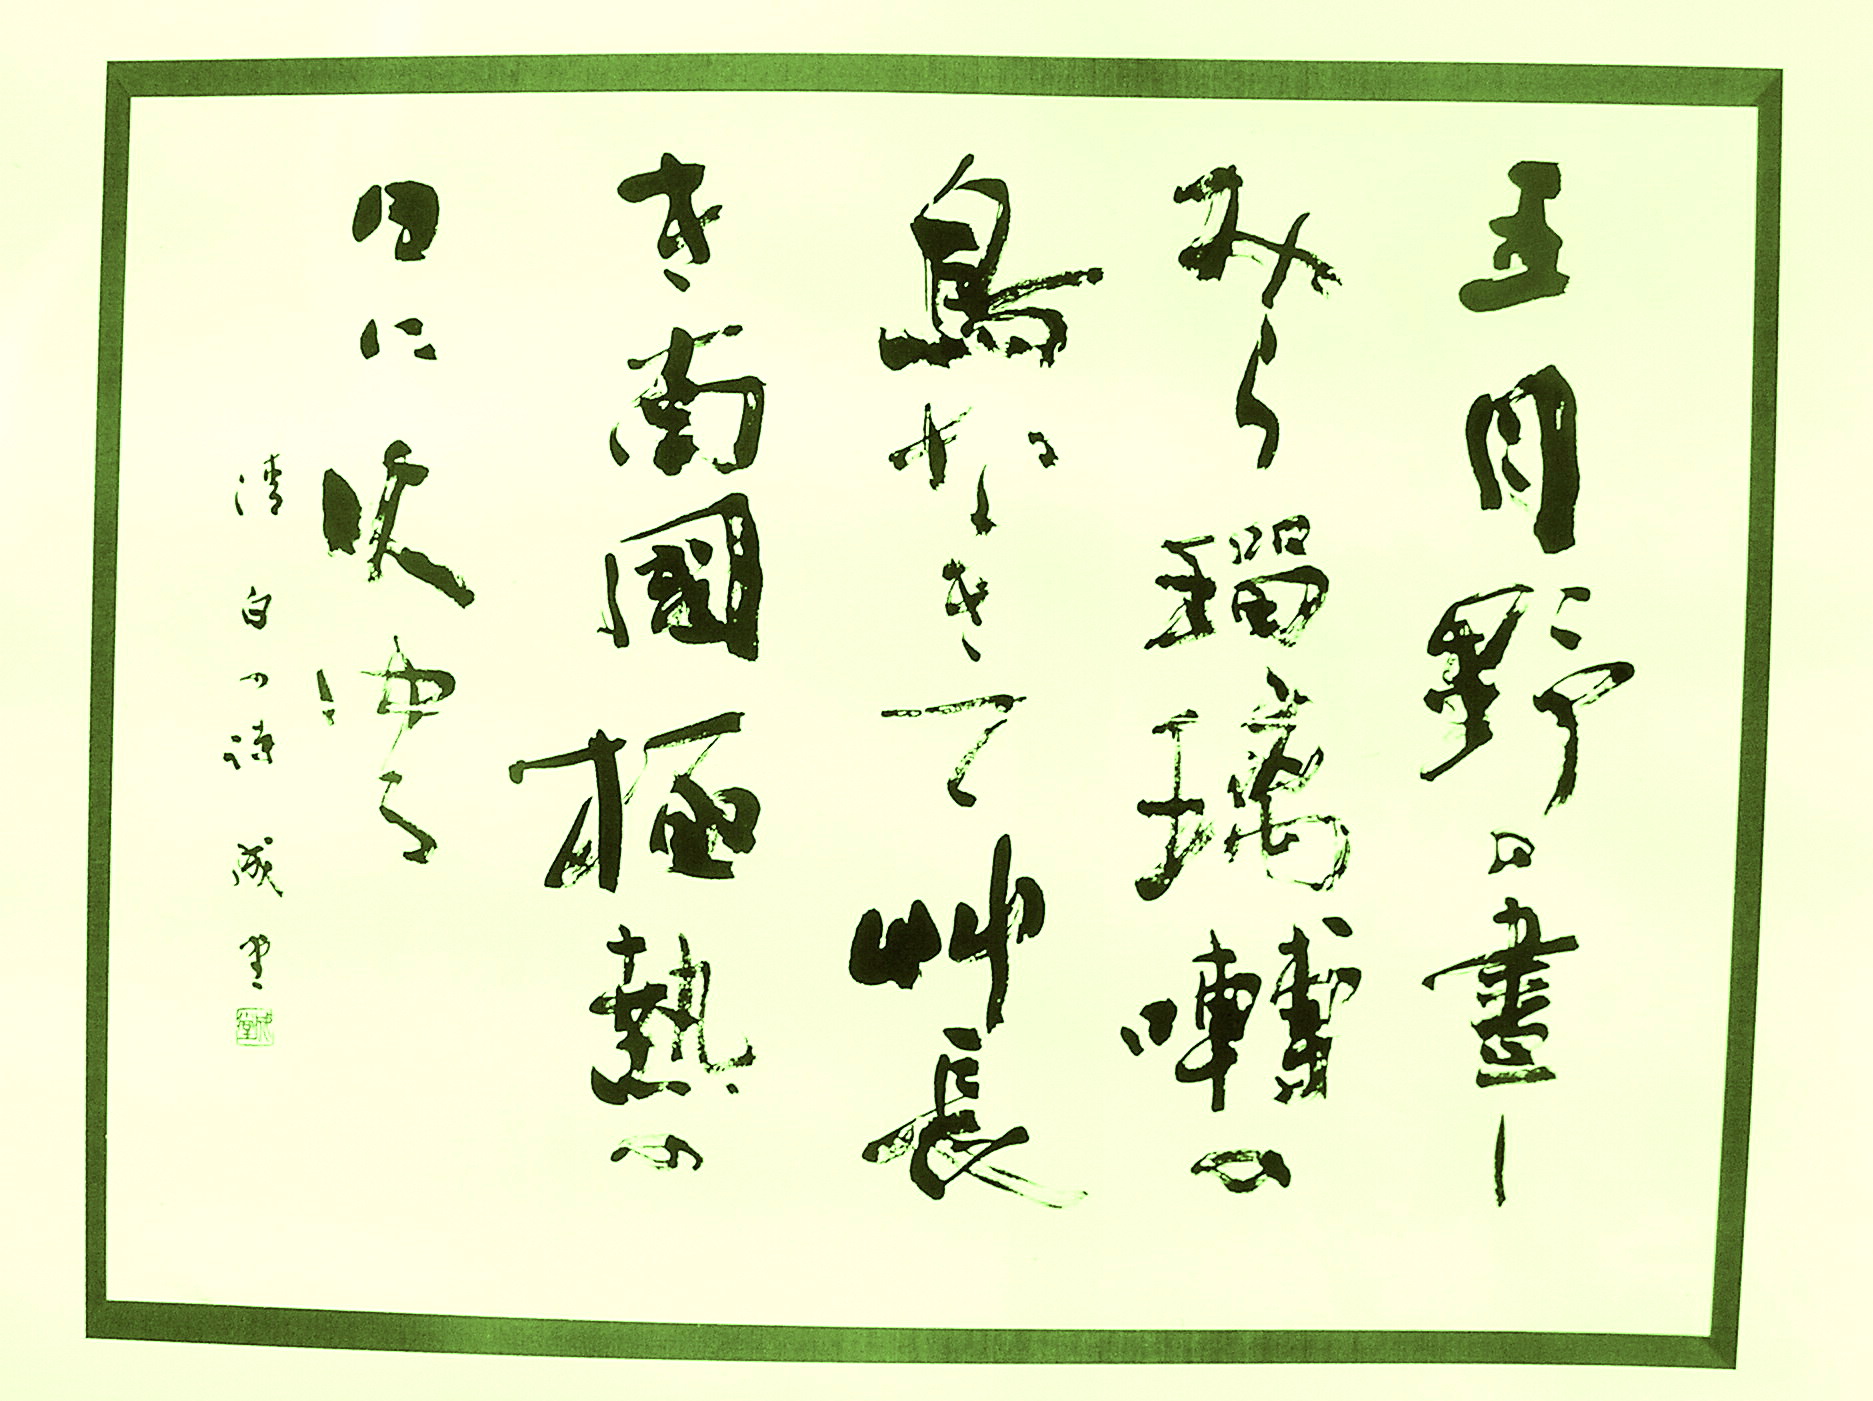 五月野の晝し
みら瑠璃囀の
鳥なきて艸長
き南國極熱の
日に火ゆる
清白の詩 成堂